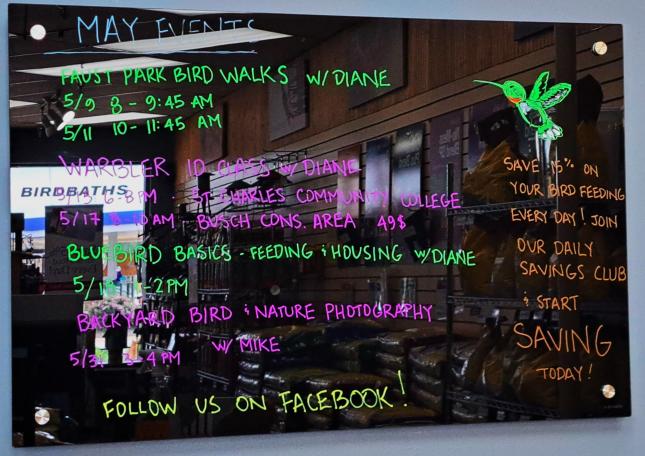 MAY EVENTS
FAUST PARK BIRD WALKS W/DIANE
5/9 8 - 9:45 AM
5/11 10 - 11:45 AM
WARBLER ID CLASS W/ DIANE
6-8 PM - ST. CHARLES COMMUNITY COLLEGE
5/17 8-10 AM - BUSCH CONS. AREA 49$
BLUEBIRD BASICS - FEEDING & HOUSING W/DIANE
-2PM
BACKYARD BIRD & NATURE PHOTOGRAPHY
W/ MIKE
5/31 3-4 PM
FOLLOW US ON FACEBOOK!
SAVE 15% ON
YOUR BIRD FEEDING
EVERY DAY! JOIN
OUR DAILY
SAVINGS CLUB
& START
SAVING
TODAY!
BIRDBATHS